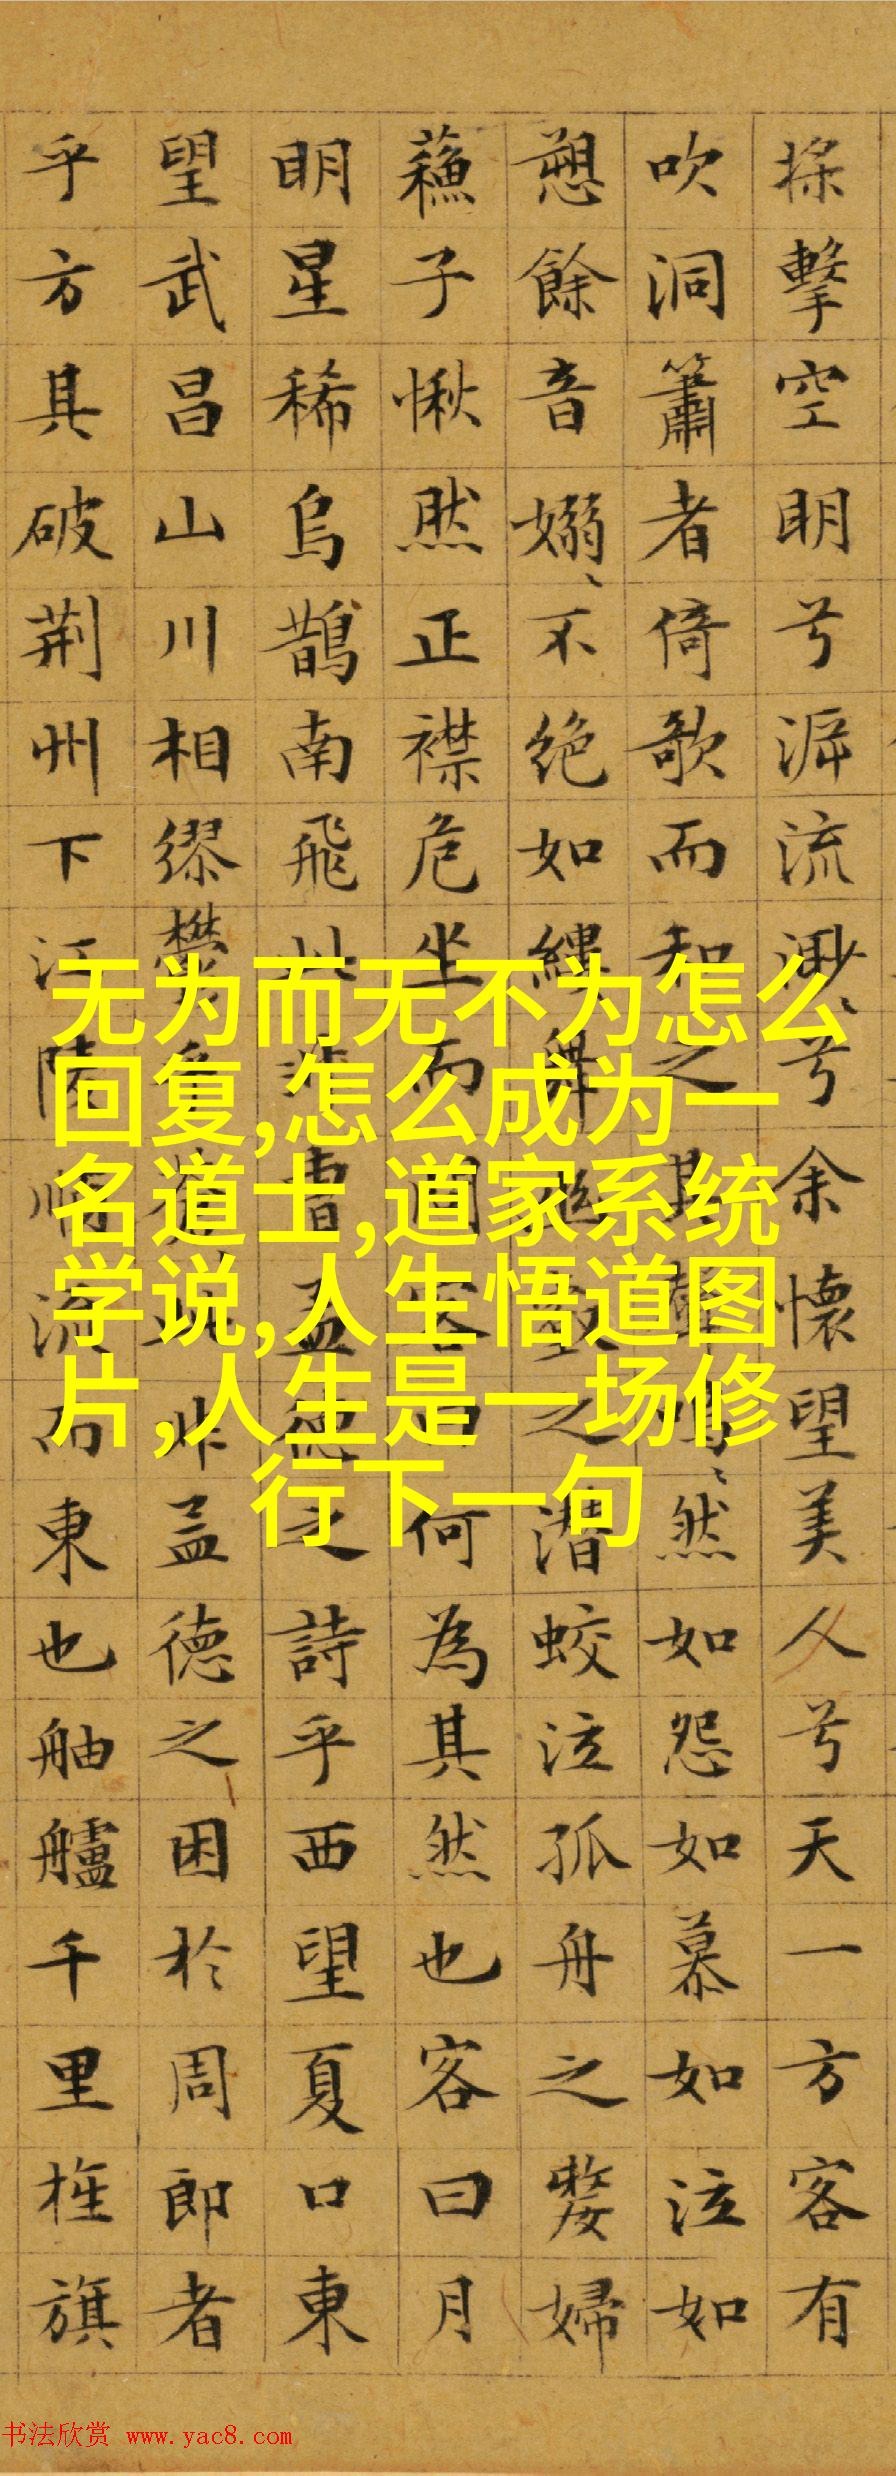 擊空明兮泝流渺〻兮余懷望美人兮天一方客有
吹洞簫者倚歌而和之其聲嗚〻然如怨如慕如泣如
愬餘音嫋〻不絶如縷舞幽壑之潛蛟泣孤舟之嫠婦
蘇子愀然正襟危坐而問客曰何為其然也客曰月
明星稀烏鵲南飛此非曹孟德之詩乎西望夏口東
望武昌山川相繆欝乎蒼此非孟德之困於周郎者
乎方其破荆州下江陵順流而東也舳艫千里旌旗
无为而无不为怎么
回复,怎么成为一
名道士,道家系统
学说,人生悟道图
片,人生是一场修
行下一句
书法欣赏 www.yac8.com